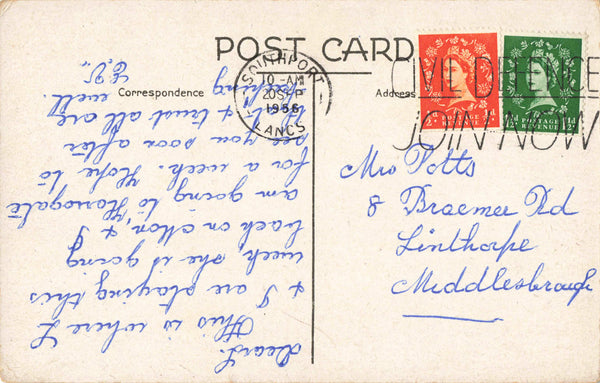 POST CARD
Correspondence
Address
SOUTHPORT
10-AM
20 SEP
1956
LANCS
CIVIL DEFENCE
JOIN NOW
POSTAGE
REVENUE
POSTAGE
REVENUE
Mrs Potts
8 Braemer Rd
Linthorpe
Middlesbrough
Dears.
This is where L
& I are staying this
week, she is going
back on Mon, & I
am going to Harrogate
for a week. Hope to
see you soon after
& trust all are
keeping well.